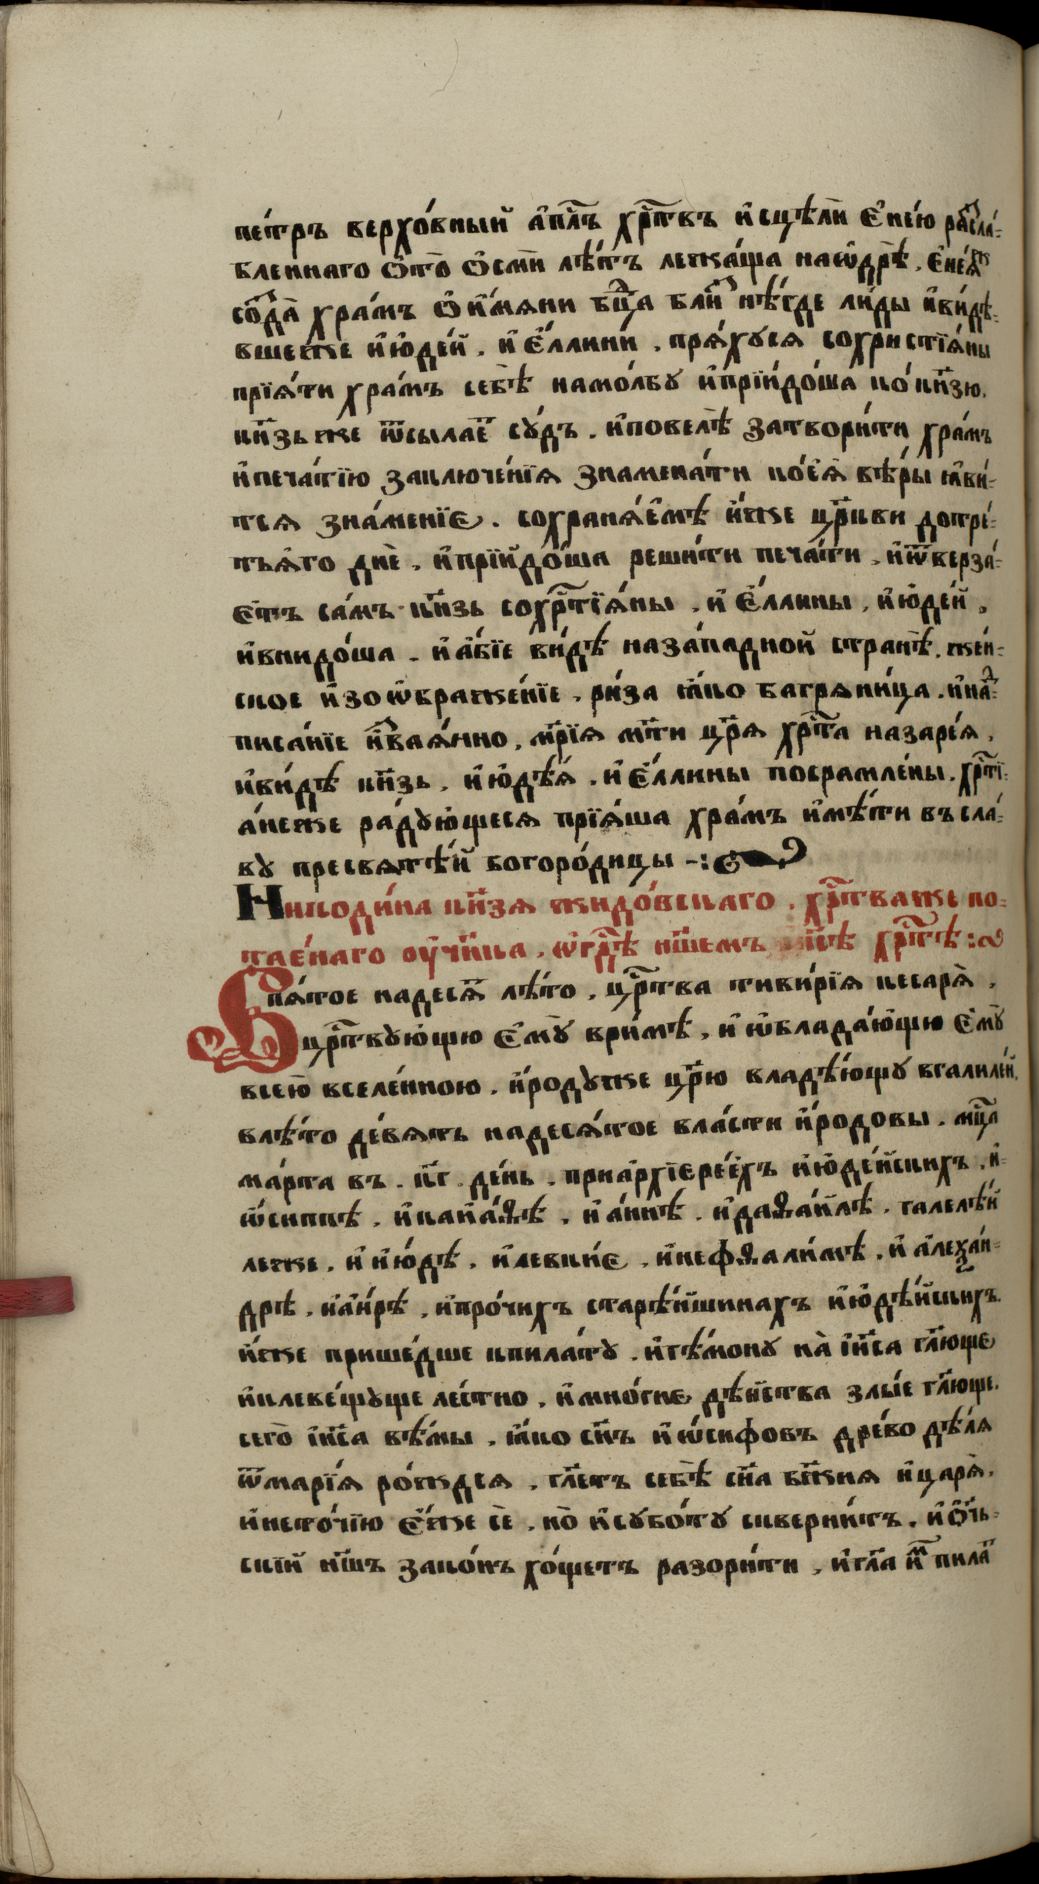 пе́тръ верхо́вный а҆пл҃ъ хрⷭ҇твъ и҆сцѣлѝ є҆не́ю расла́-
бленнаго ѿ ѻ҆смѝ лѣ́тъ лежа́ща наѡ҆дрѣ̀. є҆не́ѧже
созда̀ хра́мъ ѻ҆и҆мѧни бц҃а бли́з нѣ́где ли́ды и҆ви́дѣ-
вшеже и҆ю҆де́й. и҆ є҆́ллини. прѧ́хусѧ сохристїѧ́ны
прїѧ́ти хра́мъ себѣ̀ намо́лбу и҆прїидо́ша ко́ кн҃зю.
кн҃зьже ѿсыла́ет су́дъ. и҆повелѣ̀ затвори́ти хра́мъ
и҆печа́тїю заключе́нїѧ знамена́ти ко́еѧ̀ вѣ́ры ꙗ҆ви́-
тсѧ зна́менїе. сохранѧ́емѣ и҆́же цр҃кви дотре́-
тьѧ́го днѐ. и҆прїйдо́ша реши́ти печа́ти. и҆ѿверза́-
етъ са́мъ кн҃зь сохрⷭ҇тїѧ́ны. и҆ є҆́ллины, и҆ю҆де́й,
и҆внидо́ша. и҆ а҆́бїе ви́дѣ наза́падной странѣ̀. же́н-
ское и҆зоѡ҆браже́нїе. ри́за ꙗ҆́ко багрѧни́ца. и҆над-
писа́нїе и҆зваѧ́нно. мр҃їѧ мт҃и цр҃ѧ хрⷭ҇та назаре́ѧ.
и҆ви́дѣ кн҃зь. и҆ю҆дѣ́ѧ. и҆ є҆́ллины посрамле́ны. хрⷭ҇тї-
а́неже ра́дующесѧ прїѧ́ша хра́мъ и҆мѣ́ти въ сла́-
ву пресвѧтѣ́й богоро́дицы
Никоди́ма кн҃зѧ жидо́вскаго. хрⷭ҇тваже по-
тае́наго ѹ҆чн҃ка. ѡ҆гдⷭ҇ѣ нш҃емъ і҆и҃сѣ хрⷭ҇тѣ
Впѧ́тое надесѧ́т лѣ́то. црⷭ҇тва тиви́рїѧ кесарѧ̀.
црⷭ҇тву́ющю є҆мꙋ̀ ври́мѣ, и҆ ѡ҆блада́ющю є҆мꙋ̀
все́ю вселе́нною. и҆́родуже цр҃ю владѣ́ющу вгалиле́й.
влѣ́то де́вѧть надесѧ́тое вла́сти и҆́родовы. мцⷭ҇а
ма́рта въ. к҃г. де́нь. приа҆рхїере́ехъ и҆ю҆де́йскихъ. и҆-
ѡ҆́сиппѣ. и҆каиа́ѳѣ. и҆ а҆́ннѣ. и҆даѳаи́лѣ. галелѣ́й
леже. и҆ и҆ю́дѣ. и҆левки́е. и҆нефѳали́мѣ. и҆ а҆леѯа́н-
дрѣ. и҆аи́рѣ. и҆про́чихъ старѣ́йшинахъ и҆ю҆дѣ́йскихъ.
и҆́же прише́дше кпила́ту. и҆гѣ́мону на̀ і҆и҃са гл҃юще
и҆клеве́щуще ле́стно. и҆мно́гие дѣ́йства злы́е гл҃юще.
сего̀ і҆и҃са вѣ́мы. ꙗ҆́ко сн҃ъ и҆ѡ́сифовъ дре́во дѣ́лѧ
ѿмарїѧ ро́ждсѧ. гл҃етъ себѣ̀ сн҃а бж҃иѧ и҆царѧ̀.
и҆нето́чїю є҆́же сѐ. но̀ и҆субо́ту скверни́тъ. и҆ѻ҆ч҃ь-
скїй нш҃ъ зако́нъ хо́щетъ разори́ти. и҆гл҃а и҆м пила́т